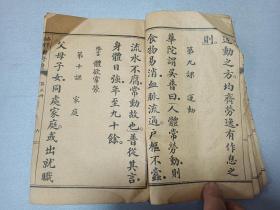 運動之方均齊勞逸有作息之
則。
第九課 運動
華陀謂吳普曰人體常勞動則
食物易消血脈流通戶樞不蠹
流水不腐常動故也普從其言
身體日強年至九十餘。
體欲常勞
第十課 家庭
父母子女同處家庭或出就職